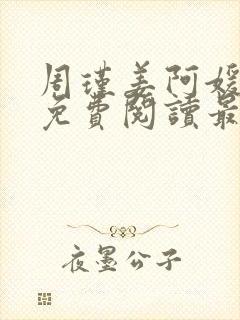 周瑾姜阿媛
免費閱讀最
夜墨公子